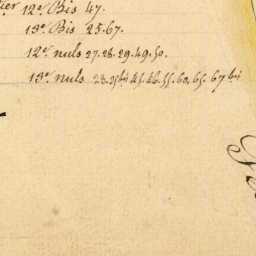 12e. Bis 47.
13e. Bis 25.67.
12e. nuls 27.28.29.49.50.
13e. nuls 23.25bis 45.46.55.60.65.67 bis